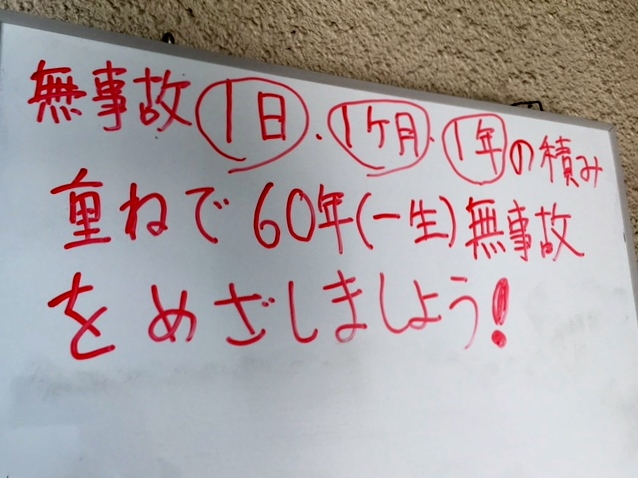 無事故1日、1ケ月、1年の積み
重ねで60年(一生)無事故
をめざしましょう!